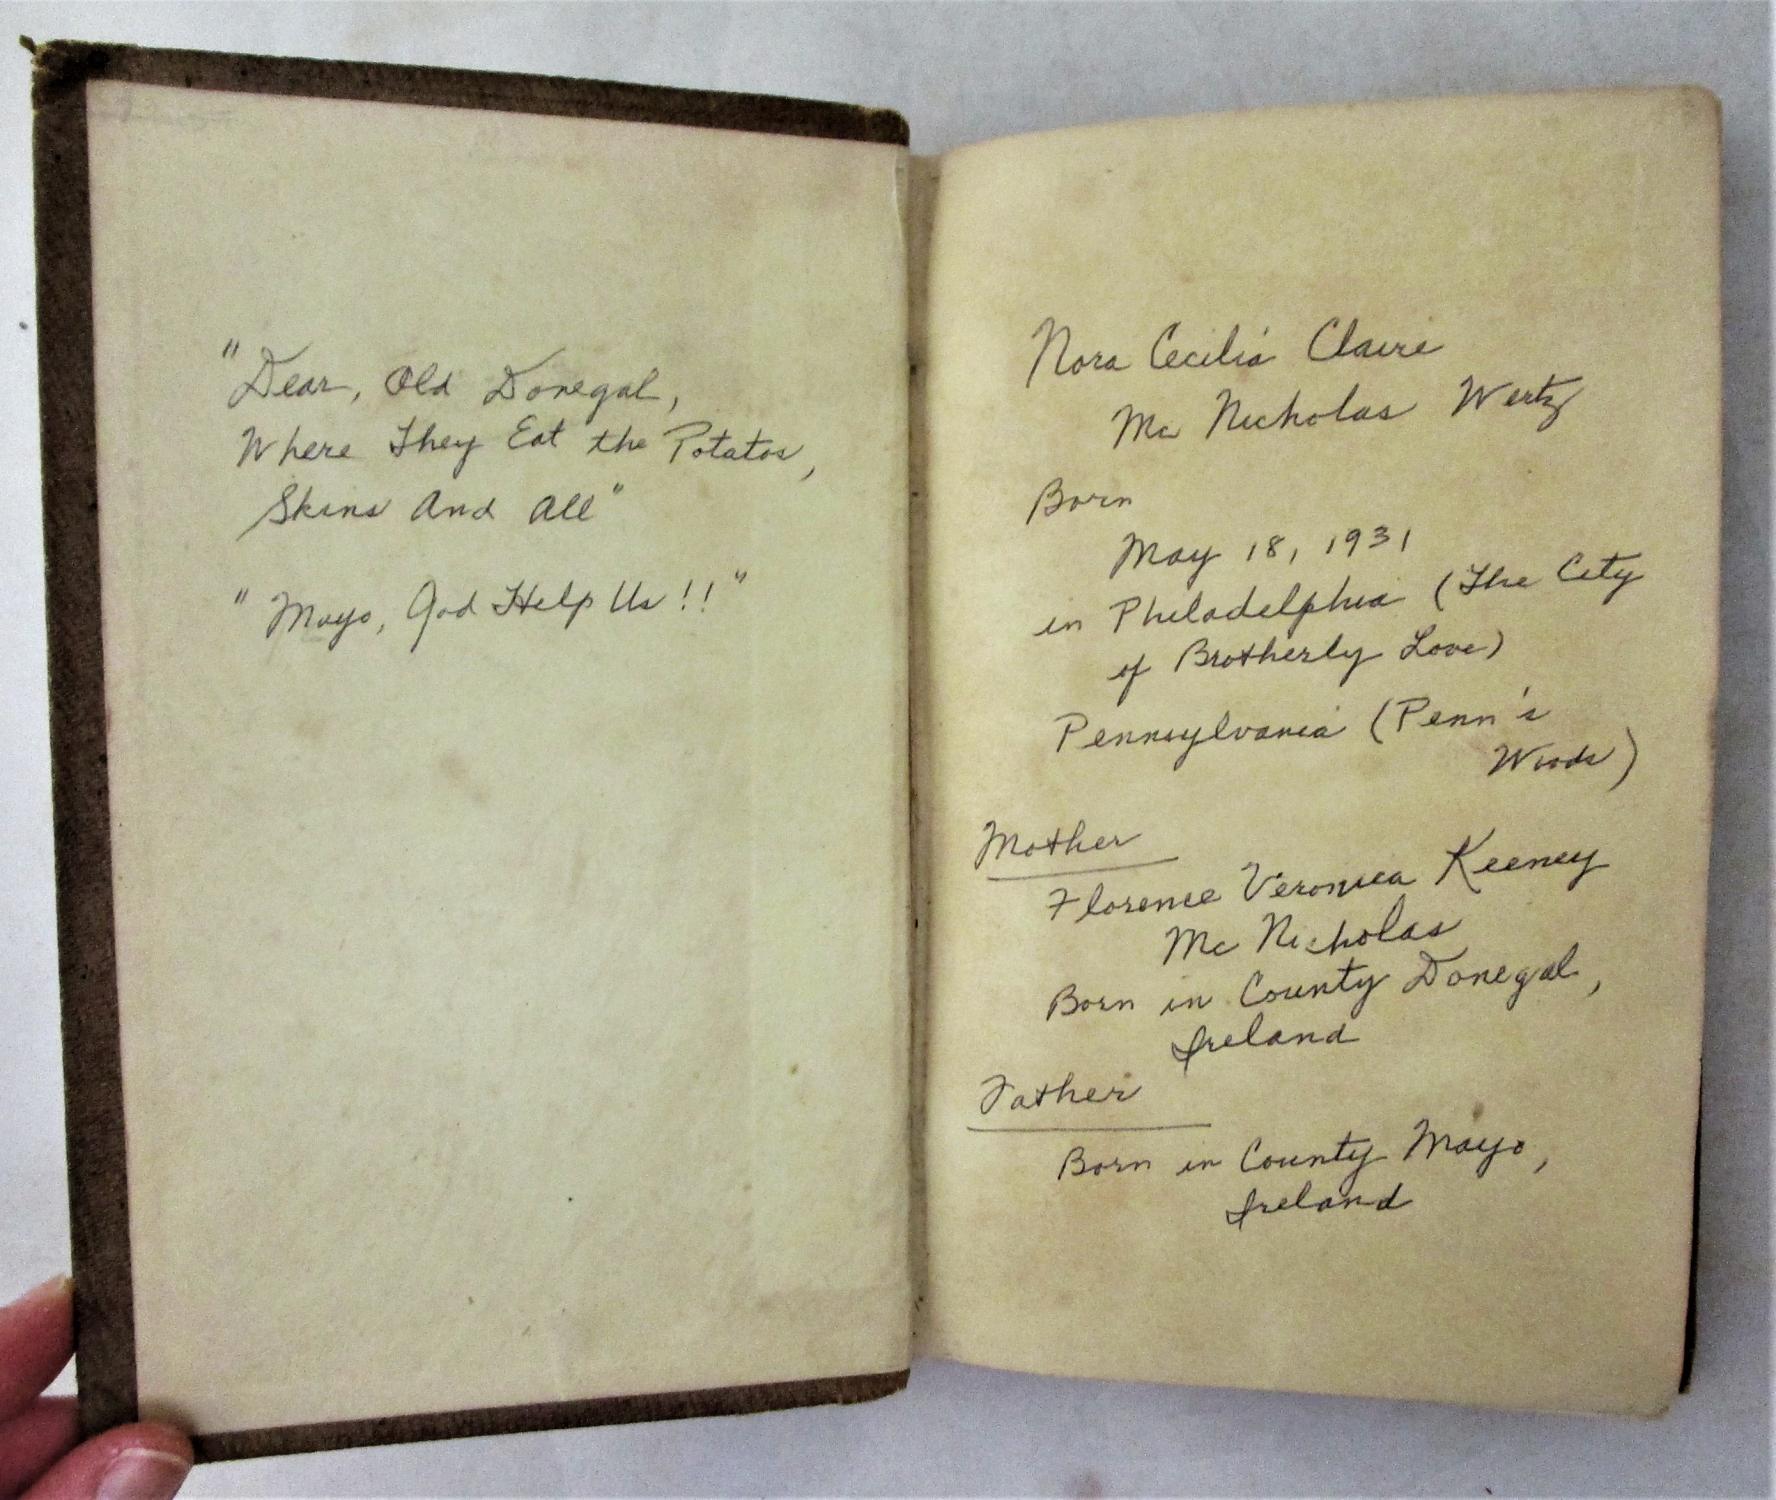 "Dear, Old Donegal,
Where They Eat the Potatos,
Skins And All"
"Mayo, God Help Us!!"
Nora Cecilia Claire
Mc Nicholas Wertz
Born
May 18, 1931
in Philadelphia (The City
of Brotherly Love)
Pennsylvania (Penn's
Woods)
Mother
Florence Veronica Keeney
Mc Nicholas
Born in County Donegal,
Ireland
Father
Born in County Mayo,
Ireland